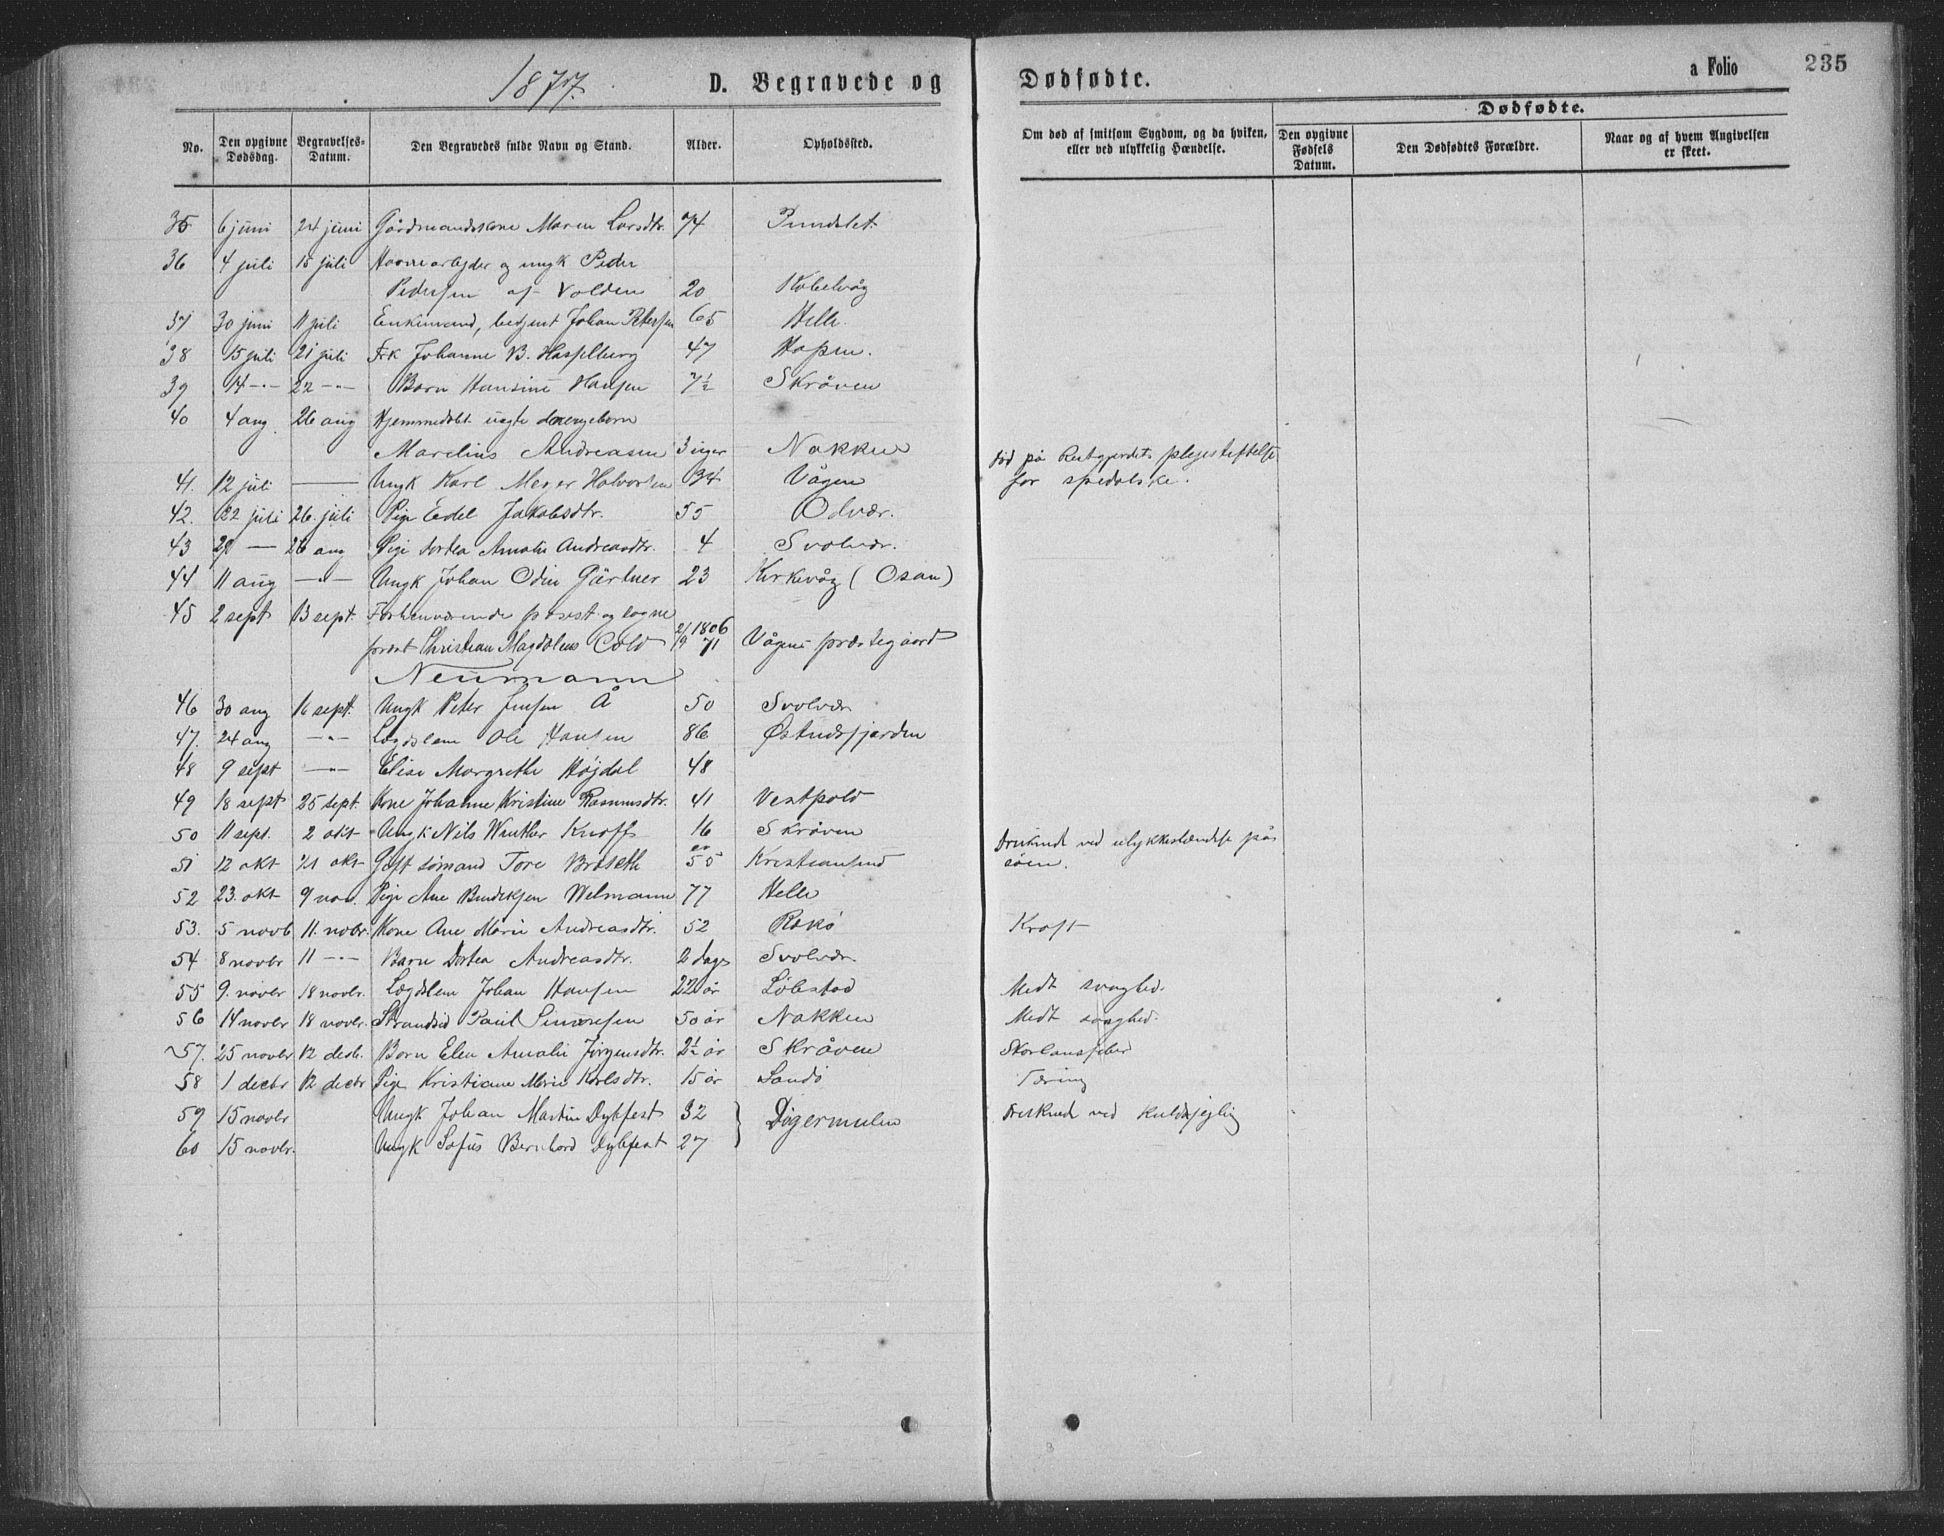 235
1877.
D. Begravede og Dødfødte. a Folio
Dødfødte.
No. Den opgivne Dødsdag. Begravelses-Datum. Den Begravedes fulde Navn og Stand. Alder. Opholdssted. Om død af smitsom Sygdom, og da hviken, eller ved ulykkelig Hændelse. Den opgivne Fødsels Datum. Den Dødfødtes Forældre. Naar og af hvem Angivelsen er skeet.
35 6 juni 24 juni Gårdmandskone Maren Larsdtr. 74 Pundslet
36 4 juli 15 juli Havnearbejder og ungk Peder
Pedersen af Volden 20 Kabelvåg
37 30 juni 11 juli Enkemand, betjent Johan Petersen 65 Helle.
38 15 juli 21 juli Frk Johanne B. Hasselberg 47 Hopen.
39 14 -"- 22 -"- Barn Hansine Hansen 7½ Skråven
40 4 aug. 26 aug Hjemmedøbt uegte drengebarn
Marelius Andreasen 3 uger Nakken
41. 12 juli — Ungk Karl Meyer Halvorsen 34 Vågene død på Reitgjerdets plejestiftelse
for spedalske.
42. 22 juli 26. juli Pige Edel Jakobsdtr. 55 Odvær.
43 29 — 26 aug Pige Dortea Amalie Andreasdtr. 4 Svolvær.
44 11 aug -"- Ungk Johan Odin Gärtner 23 Kirkevåg (Osan)
45 2 sept 13 sept. Forhenværende provst og sogne
prest Christian Magdalus Cold 21/9 1806 71 Vågens præstegaard
Neumann
46 30 aug 16 sept. Ungk Peter Jensen Å 50 Svolvær
47. 24 aug -"- Lægdslem Ole Hansen 86 Østnesfjorden
48 9 sept -"- Elise Margrethe Højdal 48
49 18 sept 25 sept. Kone Johanne Kristine Rasmusdtr. 41 Vestpold
50 11 sept. 2 okt Ungk Nils Winther Knoff 16 Skråven Druknet ved ulykkeshændelse på
søen.
51 12 okt 21 okt Gift sømand Tore Bräseth 55 Kristiansund
52 23. okt 9 nov. Pige Ane Bendiksen Welmann 77 Helle
53. 5 novb 11. novbr. Kone Ane Marie Andreasdtr. 52 Rækø Kræft
54 8 novbr 11 -"- Barn Dortea Andreasdtr. 2 dage Svolvær
55 9. novbr 18 novbr. Lægdslem Johan Hansen 22 år Løbstad Medt svaghed.
56 14 novbr 18 novbr. Strandsid Paul Simonsen 50 år Nakken Medt svaghed.
57. 25 novbr 12 decb. Barn Elen Amalie Jørgensdtr. 2½ år Skråven Skarlansfeber
58 1 decbr 12 decbr Pige Kristiane Marie Karlsdtr. 15 år Sandø Tæring
59 15 novbr Ungk Johan Martin Dybfest 32 } Digermulen Druknet ved Kuldsejling
60 15 novbr. Ungk Sofus Bernhard Dybfest 27